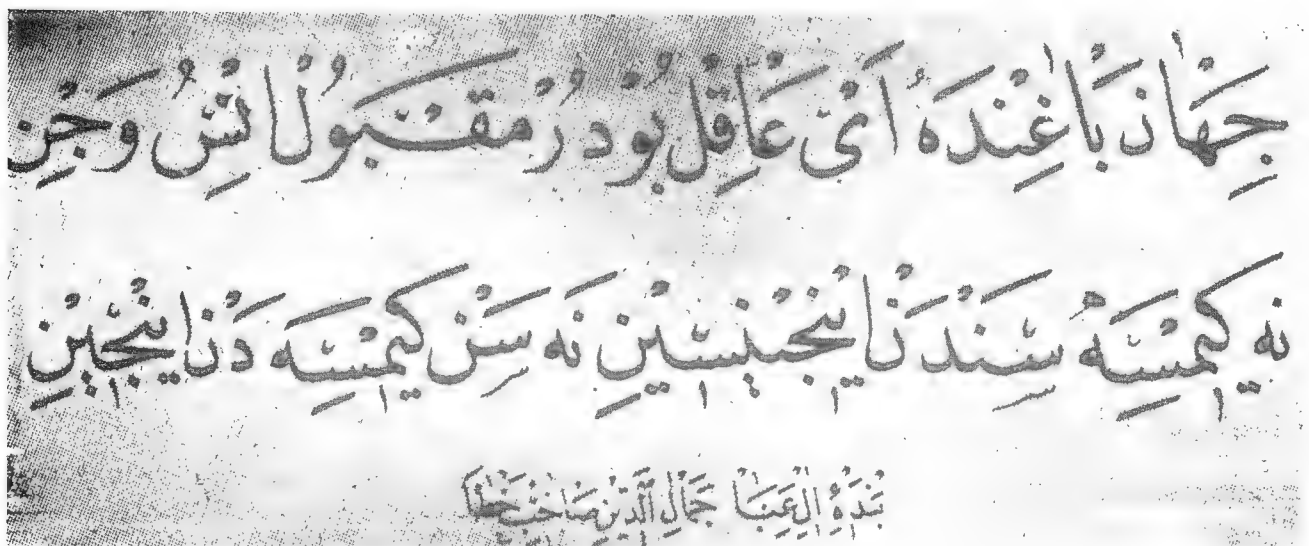 جِهَانْ بَاغِنْدَهْ اَىْ عَاقِلْ بُودُرْ مَقْبُولِ اِنْسُ وَجِنْ
نَه كِيمْسَه سَنْدَنْ اِينْجِنْسِينْ نَه سَنْ كِيمْسَه دَنْ اِينْجِينْ
بَنْدَۀ اٰلِ عَبَا جَمَالُ الدِّين صَاحِبْ خَطَا